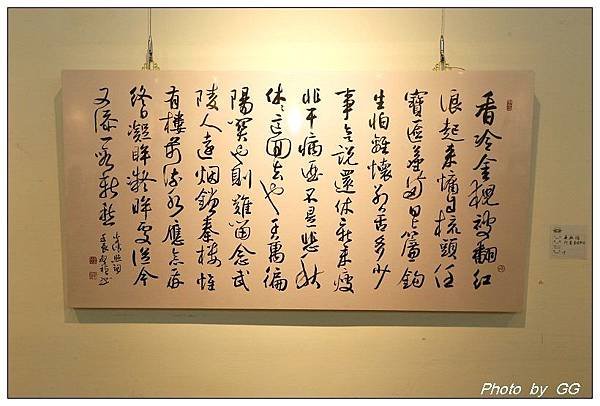 香冷金猊被翻紅
浪起來慵自梳頭任
寶匳塵滿日上簾鉤
生怕離懷別苦多少
事欲說還休新來瘦
非干病酒不是悲秋
休々這回去也千萬徧
陽關也則難留念武
陵人遠烟鎖秦樓惟
有樓前流水應念吾
終日凝眸凝眸處從今
又添一段新愁
Photo by GG